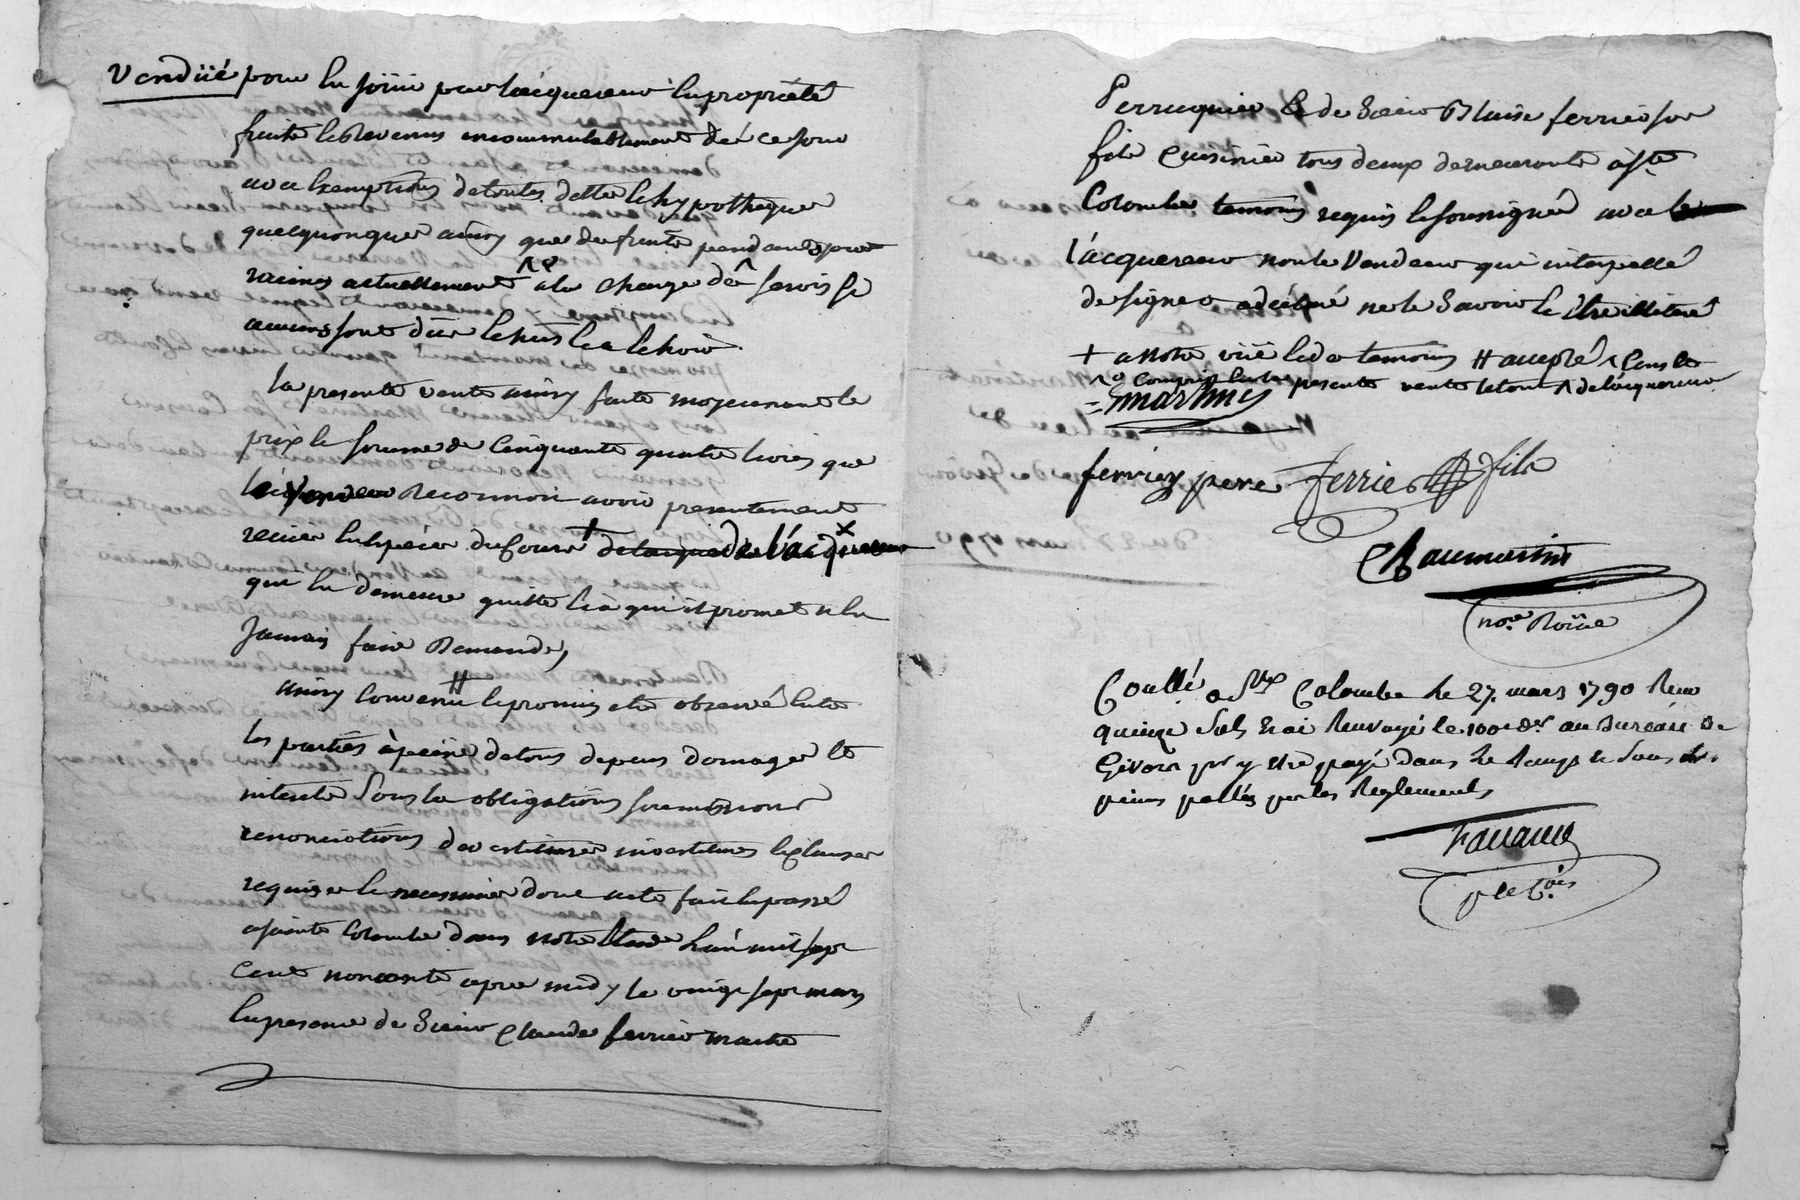 Vendüe pour en Joüir par Lacquereur En propriété
fruits & Revenus incommutablement dés ce jour
avec Exemptions de toutes dettes & hypotheques
quelquonques ainsy que des fruits pendants par
racines actuellement ^ ^o a la charge dû servis si
aucuns sont dûs & puis & a Echoir.
La presente vente ainsy faite moyennant le
prix & somme de Cinquante quatre Livres que
le Vendeur Reconnoit avoir presentement
recüe En Especes du Cours + de l'acquereur ×
qui En demeure quitte & a qui il promet n'En
Jamais faire Demande,
ainsy Convenu # & promis etre observé Entre
les parties à peine de tous depens domages &
interets Sous les obligations soumissions
renonciations devestitures investitures & Clauses
requises & necessaires dont acte fait & passé
a sainte Colombe dans notre Etude L'an mil sept
Cent nonante apres midy le vingt sept mars
En presence de Sieur Claude ferrier maitre
Perruquier & de Sieur Blaise ferrier son
fils Cuisinier tous deux demeurants à Ste
Colombe temoins requis & soussignés avec
L'acquereur non le Vendeur qui interpellé
de signer a déclaré ne le Savoir & Etre illitéré
+ a Notre vüe & des temoins # accepté ^ Cens &
^o Compris En la presente vente le tout × de Lacquereur
= Martin
ferrier pere Ferrier fils
Chaumartin
nore Roïal
Conllé a Ste Colombe le 27. mars 1790 Reçu
quinze Sols Et ai Renvoyé le 100e dr au Bureau de
Givors pr y Etre payé dans le temps & sous les
peines portées par les Reglements